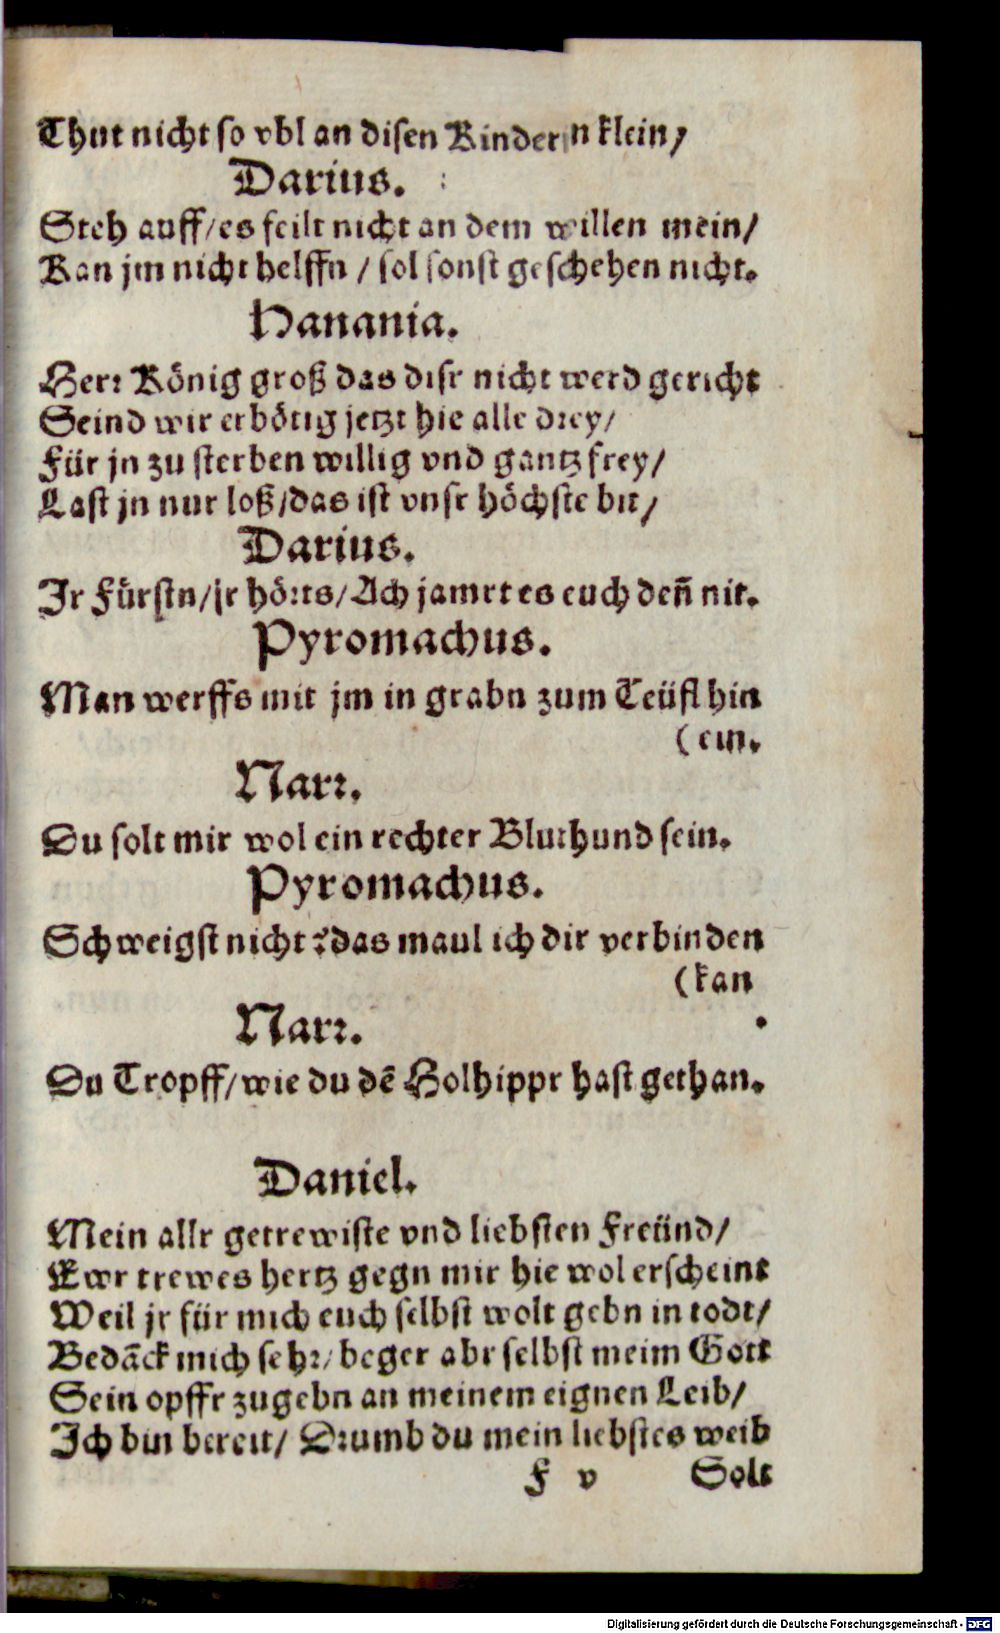 Thut nicht so vbl an disen Kindern klein/
Darius.
Steh auff/es feilt nicht an dem willen mein/
Kan jm nicht helffn / sol sonst geschehen nicht.
Hanania.
Herr König groß das disr nicht werd gericht
Seind wir erbötig jetzt hie alle drey/
Für jn zu sterben willig vnd gantz frey/
Last jn nur loß/das ist vnsr höchste bit/
Darius.
Jr Fürstn/jr hörts/Ach jamrt es euch deñ nit.
Pyromachus.
Man werffs mit jm in grabn zum Teüfl hin
(ein.
Narr.
Du solt mir wol ein rechter Bluthund sein.
Pyromachus.
Schweigst nicht? das maul ich dir verbinden
(kan
Narr.
Du Tropff/wie du dẽ Holhippr hast gethan.
Daniel.
Mein allr getrewiste vnd liebsten Freünd/
Ewr trewes hertz gegn mir hie wol erscheint
Weil jr für mich euch selbst wolt gebn in todt/
Bedãck mich sehr/ beger abr selbst meim Gott
Sein opffr zugebn an meinem eignen Leib/
Ich bin bereit/ Drumb du mein liebstes weib
F v Solt
Digitalisierung gefördert durch die Deutsche Forschungsgemeinschaft - DFG